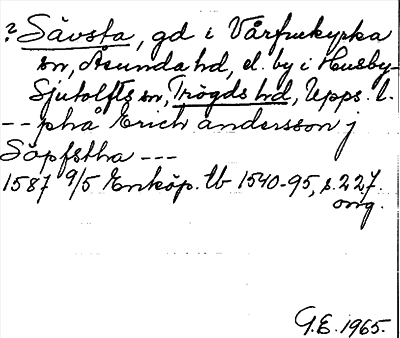 ? Sävsta, gd i Vårfrukyrka
sn, Åsunda hd, el. by i Husby-
Sjutolfts sn, Trögds hd, Upps. l.
-- phå Erich andersson j
Söpfstha ---
1587 9/5 Enköp. tb 1540-95, s. 227.
orig.
G.E. 1965.